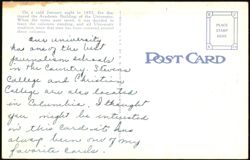 On a cold January night in 1892, fire destroyed the Academic Building of the University.
When the ruins were razed, it was decided to leave the columns standing, and all University tradition since that time has been centered around these six columns.
POST CARD
PLACE
STAMP
HERE
Our university
has one of the best
journalism schools
in the country. Stevens
College and Christian
College are also located
in Columbia. I thought
you might be interested
in this card - it has
always been one of my
favorite cards.